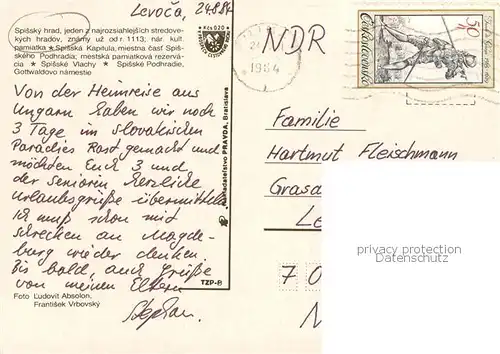 Levoča, 24.8.84
Spišský hrad, jeden z najrozsiahlejších stredove-
kých hradov, známy už od r. 1113; nár. kult.
pamiatka ★ Spišská Kapitula, miestna časť Spiš-
ského Podhradia; mestská pamiatková rezervá-
cia ★ Spišské Vlachy ★ Spišské Podhradie,
Gottwaldovo námestie
Kčs 020
Von der Heimreise aus
Ungarn haben wir noch
3 Tage im slovakischen
Paradies Rast gemacht und
möchten Euch 3 und
der Senioren herzliche
Urlaubsgrüße übermitteln
Ich muß schon mit
schrecken an Magde-
burg wieder denken.
bis bald, auch Grüße
von meinen Eltern
Stephan
Foto Ľudovít Absolon,
František Vrbovský
TZP-B
Nakladateľstvo PRAVDA, Bratislava
NDR
1984
50
Československo
Familie
Hartmut Fleischmann
Grasda
Le
70
N
privacy protection
Datenschutz